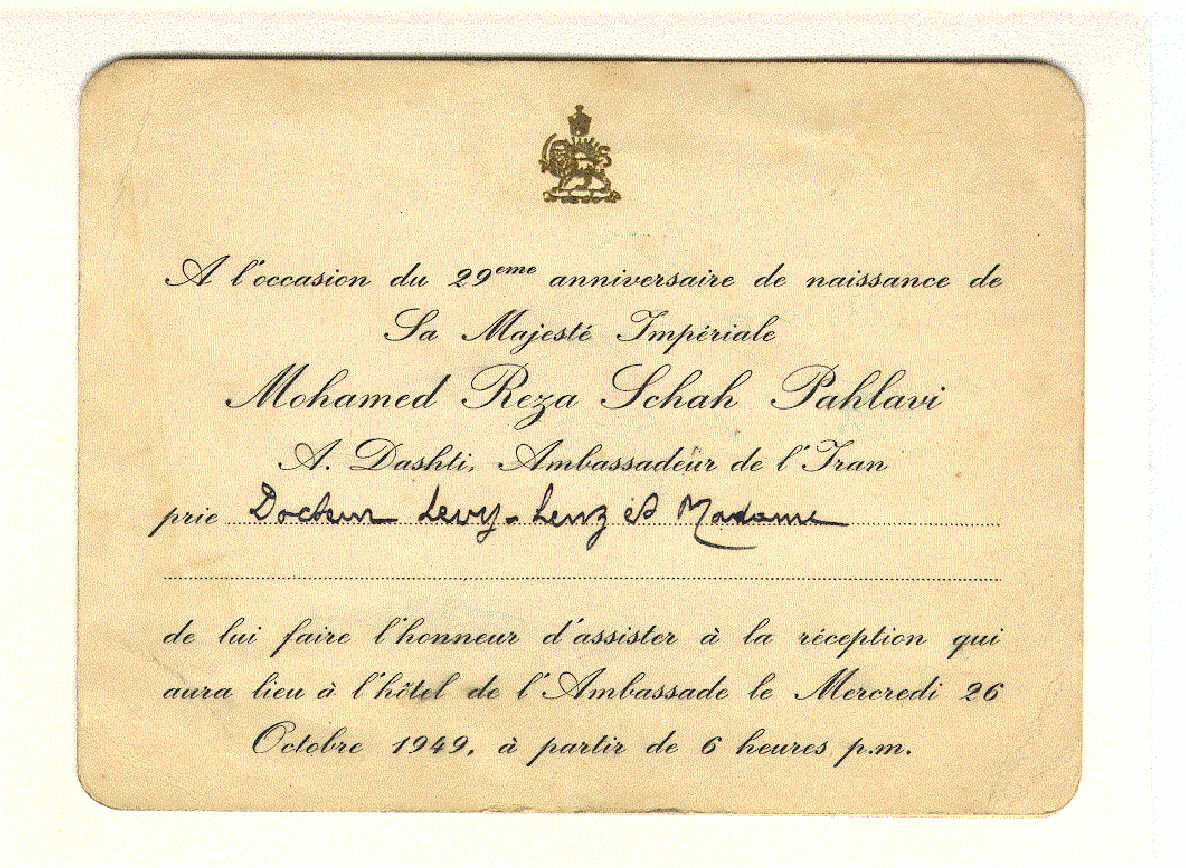 A l'occasion du 29eme anniversaire de naissance de
Sa Majesté Impériale
Mohamed Reza Schah Pahlavi
A. Dashti, Ambassadeur de l'Iran
prie Docteur Levy-Lenz et Madame
de lui faire l'honneur d'assister à la réception qui
aura lieu à l'hôtel de l'Ambassade le Mercredi 26
Octobre 1949, à partir de 6 heures p.m.